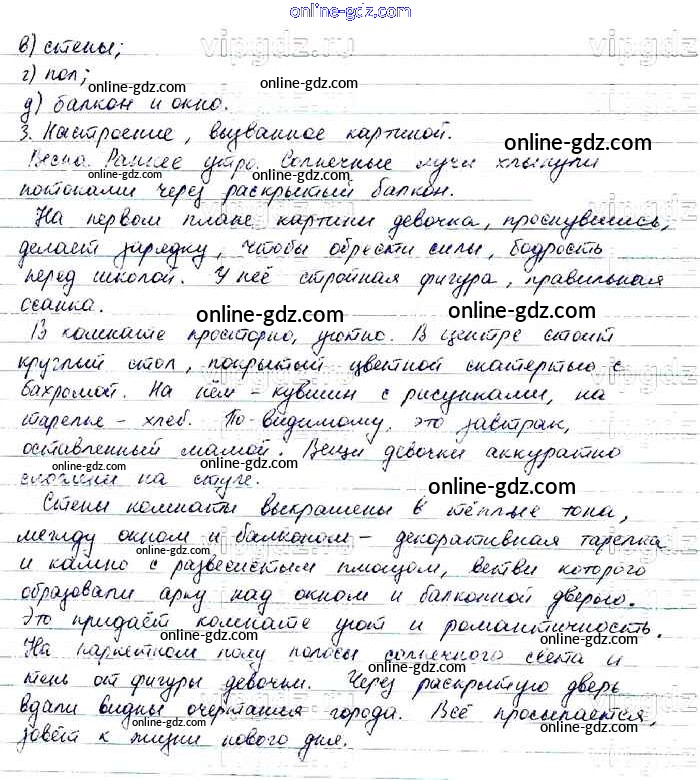 online-gdz.com
vipgdz.ru
в) стены;
г) пол;
online-gdz.com
online-gdz.com
д) балкон и окно.
3. Настроение, вызванное картиной.
online-gdz.com
Весна. Раннее утро. Солнечные лучи хлынули
online-gdz.com
потоками через раскрытый балкон.
На первом плане картины девочка, проснувшись,
делает зарядку, чтобы обрести силы, бодрость
online-gdz.com
перед школой. У неё стройная фигура, правильная
осанка.
online-gdz.com
online-gdz.com
В комнате просторно, уютно. В центре стоит
круглый стол, покрытый цветной скатертью с
бахромой. На нём – кувшин с рисунками, на
тарелке – хлеб. По-видимому, это завтрак,
оставленный мамой. Вещи девочки аккуратно
online-gdz.com
сложены на стуле.
online-gdz.com
Стены комнаты выкрашены в тёплые тона,
между окном и балконом – декоративная тарелка
online-gdz.com
и кашпо с развесистым плющом, ветви которого
online-gdz.com
образовали арку над окном и балконной дверью.
Это придаёт комнате уют и романтичность.
online-gdz.com
На паркетном полу полосы солнечного света и
online-gdz.com
тень от фигуры девочки. Через раскрытую дверь
вдали видны очертания города. Всё просыпается,
online-gdz.com
зовёт к жизни нового дня.
online-gdz.com